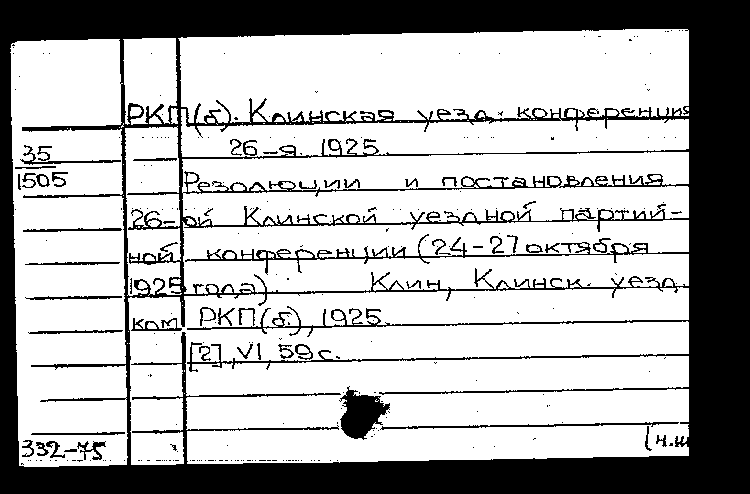 РКП(б). Клинская уезд. конференция
35 26-я. 1925.
1505 Резолюции и постановления
26-ой Клинской уездной партий-
ной конференции (24-27 октября
1925 года). Клин, Клинск. уезд.
ком РКП(б), 1925.
[2], VI, 59 с.
332-75 [н.ш